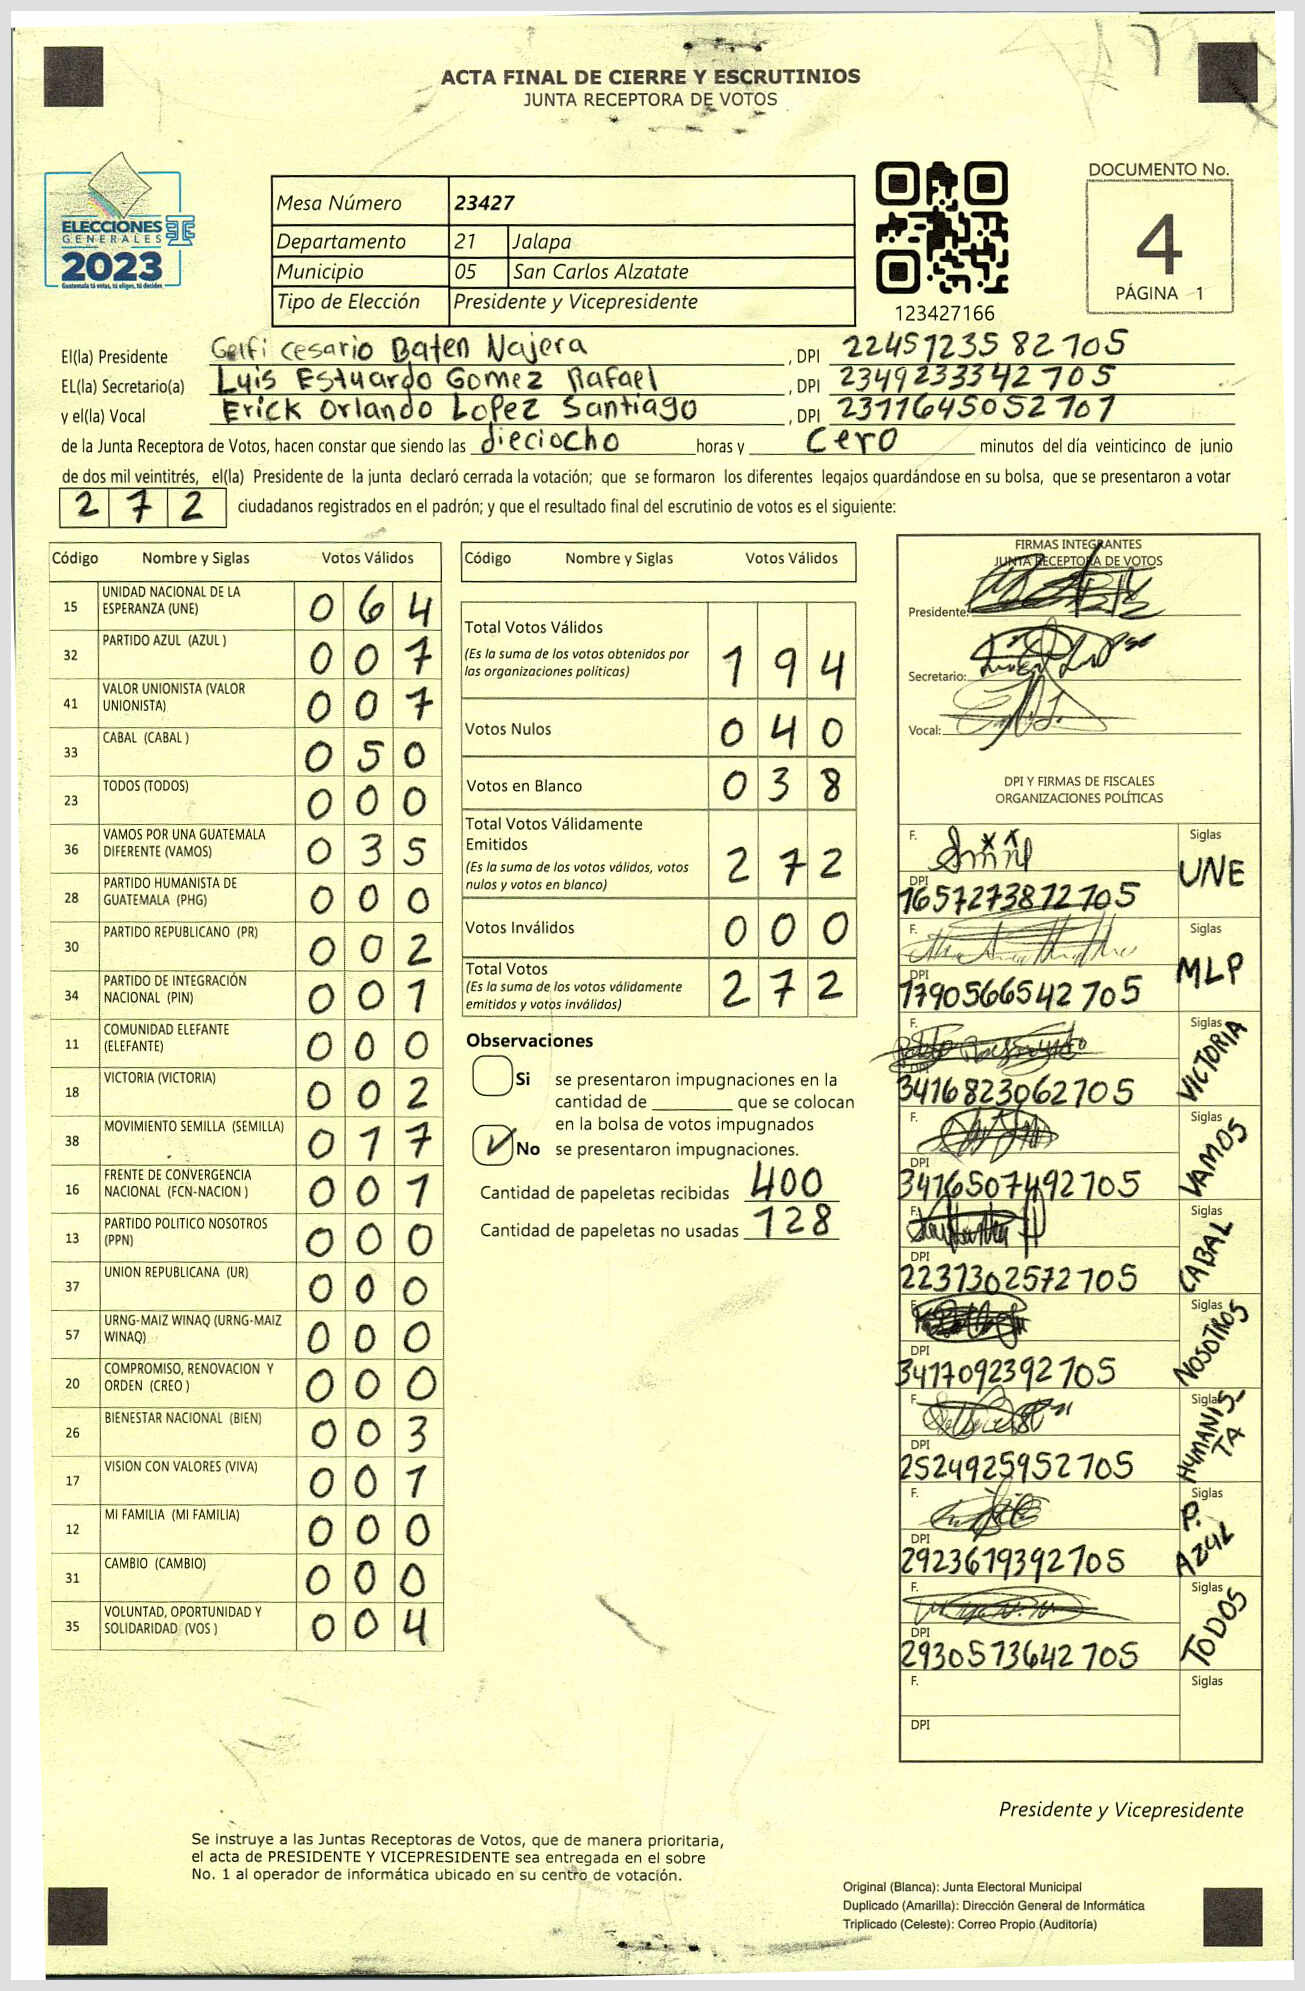 ACTA FINAL DE CIERRE Y ESCRUTINIOS
JUNTA RECEPTORA DE VOTOS
ELECCIONES
GENERALES
2023
Guatemala tú votas, tú eliges, tú decides
Mesa Número 23427
Departamento 21 Jalapa
Municipio 05 San Carlos Alzatate
Tipo de Elección Presidente y Vicepresidente
123427166
DOCUMENTO No.
4
PÁGINA 1
El(la) Presidente Gelfi Cesario Baten Najera , DPI 2245123582705
EL(la) Secretario(a) Luis Estuardo Gomez Rafael , DPI 2349233342705
y el(la) Vocal Erick Orlando Lopez Santiago , DPI 2371645052701
de la Junta Receptora de Votos, hacen constar que siendo las dieciocho horas y cero minutos del día veinticinco de junio
de dos mil veintitrés, el(la) Presidente de la junta declaró cerrada la votación; que se formaron los diferentes legajos guardándose en su bolsa, que se presentaron a votar
272 ciudadanos registrados en el padrón; y que el resultado final del escrutinio de votos es el siguiente:
Código Nombre y Siglas Votos Válidos
15 UNIDAD NACIONAL DE LA ESPERANZA (UNE) 064
32 PARTIDO AZUL (AZUL ) 007
41 VALOR UNIONISTA (VALOR UNIONISTA) 007
33 CABAL (CABAL ) 050
23 TODOS (TODOS) 000
36 VAMOS POR UNA GUATEMALA DIFERENTE (VAMOS) 035
28 PARTIDO HUMANISTA DE GUATEMALA (PHG) 000
30 PARTIDO REPUBLICANO (PR) 002
34 PARTIDO DE INTEGRACIÓN NACIONAL (PIN) 001
11 COMUNIDAD ELEFANTE (ELEFANTE) 000
18 VICTORIA (VICTORIA) 002
38 MOVIMIENTO SEMILLA (SEMILLA) 017
16 FRENTE DE CONVERGENCIA NACIONAL (FCN-NACION ) 001
13 PARTIDO POLITICO NOSOTROS (PPN) 000
37 UNION REPUBLICANA (UR) 000
57 URNG-MAIZ WINAQ (URNG-MAIZ WINAQ) 000
20 COMPROMISO, RENOVACION Y ORDEN (CREO ) 000
26 BIENESTAR NACIONAL (BIEN) 003
17 VISION CON VALORES (VIVA) 001
12 MI FAMILIA (MI FAMILIA) 000
31 CAMBIO (CAMBIO) 000
35 VOLUNTAD, OPORTUNIDAD Y SOLIDARIDAD (VOS ) 004
Código Nombre y Siglas Votos Válidos
Total Votos Válidos 194
(Es la suma de los votos obtenidos por
las organizaciones políticas)
Votos Nulos 040
Votos en Blanco 038
Total Votos Válidamente
Emitidos 272
(Es la suma de los votos válidos, votos
nulos y votos en blanco)
Votos Inválidos 000
Total Votos 272
(Es la suma de los votos válidamente
emitidos y votos inválidos)
Observaciones
Si se presentaron impugnaciones en la
cantidad de ________ que se colocan
en la bolsa de votos impugnados
No se presentaron impugnaciones.
Cantidad de papeletas recibidas 400
Cantidad de papeletas no usadas 128
FIRMAS INTEGRANTES
JUNTA RECEPTORA DE VOTOS
Presidente:
Secretario:
Vocal:
DPI Y FIRMAS DE FISCALES
ORGANIZACIONES POLÍTICAS
F. Siglas UNE
DPI 1657273872705
F. Siglas MLP
DPI 1790566542705
F. Siglas VICTORIA
DPI 3416823062705
F. Siglas VAMOS
DPI 3416507492705
F. Siglas CABAL
DPI 2237302572705
F. Siglas NOSOTROS
DPI 3417092392705
F. Siglas HUMANIS-TA
DPI 2524925952705
F. Siglas P. AZUL
DPI 2923619392705
F. Siglas TODOS
DPI 2930573642705
F. Siglas
DPI
Presidente y Vicepresidente
Se instruye a las Juntas Receptoras de Votos, que de manera prioritaria,
el acta de PRESIDENTE Y VICEPRESIDENTE sea entregada en el sobre
No. 1 al operador de informática ubicado en su centro de votación.
Original (Blanca): Junta Electoral Municipal
Duplicado (Amarilla): Dirección General de Informática
Triplicado (Celeste): Correo Propio (Auditoría)